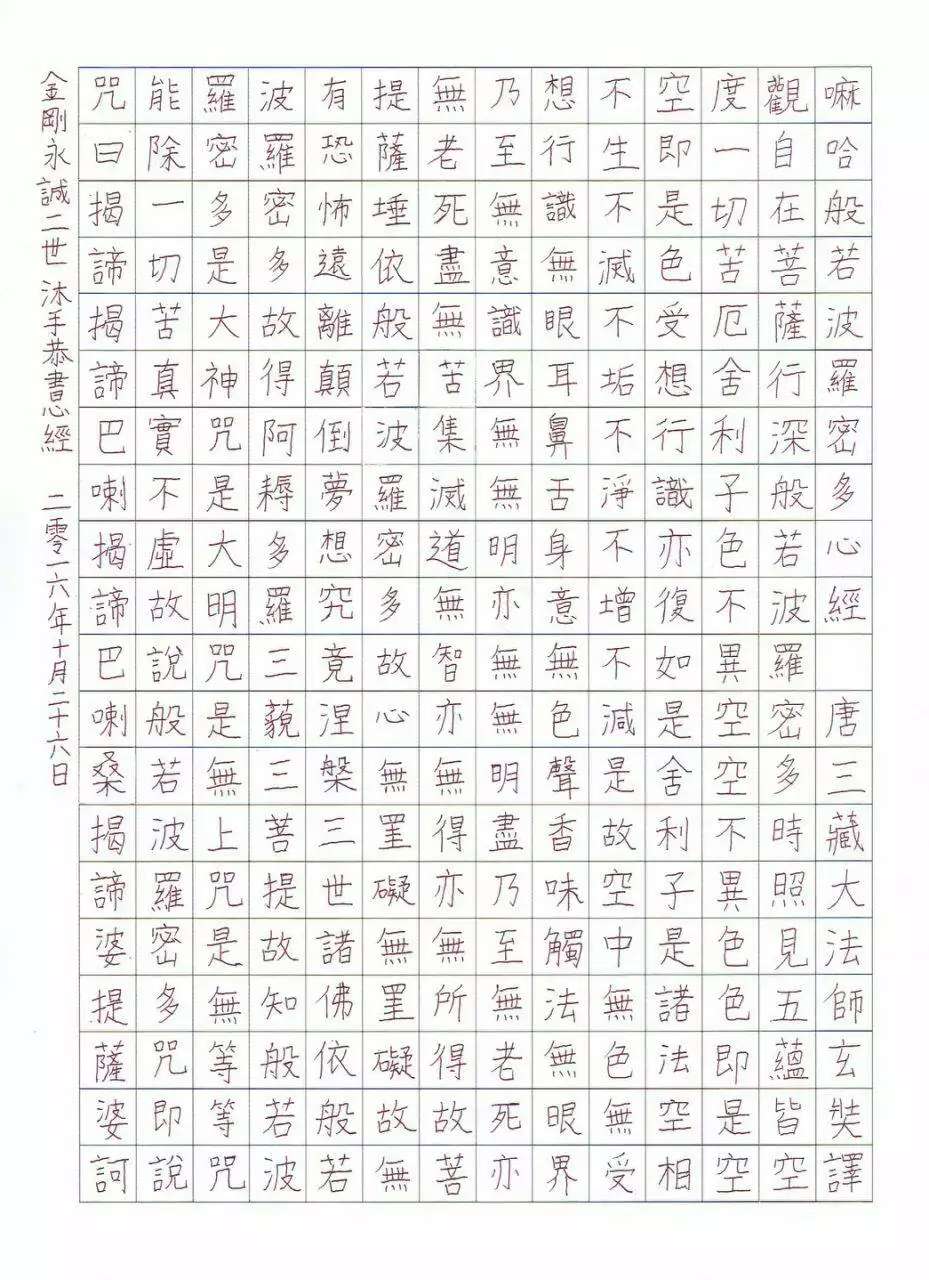 嘛哈般若波羅密多心經 唐三藏大法師玄奘譯
觀自在菩薩行深般若波羅密多時照見五蘊皆空
度一切苦厄舍利子色不異空空不異色色即是空
空即是色受想行識亦復如是舍利子是諸法空相
不生不滅不垢不淨不增不減是故空中無色無受
想行識無眼耳鼻舌身意無色聲香味觸法無眼界
乃至無意識界無無明亦無無明盡乃至無老死亦
無老死盡無苦集滅道無智亦無得亦無所得故菩
提薩埵依般若波羅密多故心無罣礙無罣礙故無
有恐怖遠離顛倒夢想究竟涅槃三世諸佛依般若
波羅密多故得阿耨多羅三藐三菩提故知般若波
羅密多是大神咒是大明咒是無上咒是無等等咒
能除一切苦真實不虛故說般若波羅密多咒即說
咒曰揭諦揭諦巴喇揭諦巴喇桑揭諦婆提薩婆訶
金剛永誠二世沐手恭書心經 二零一六年十月二十六日